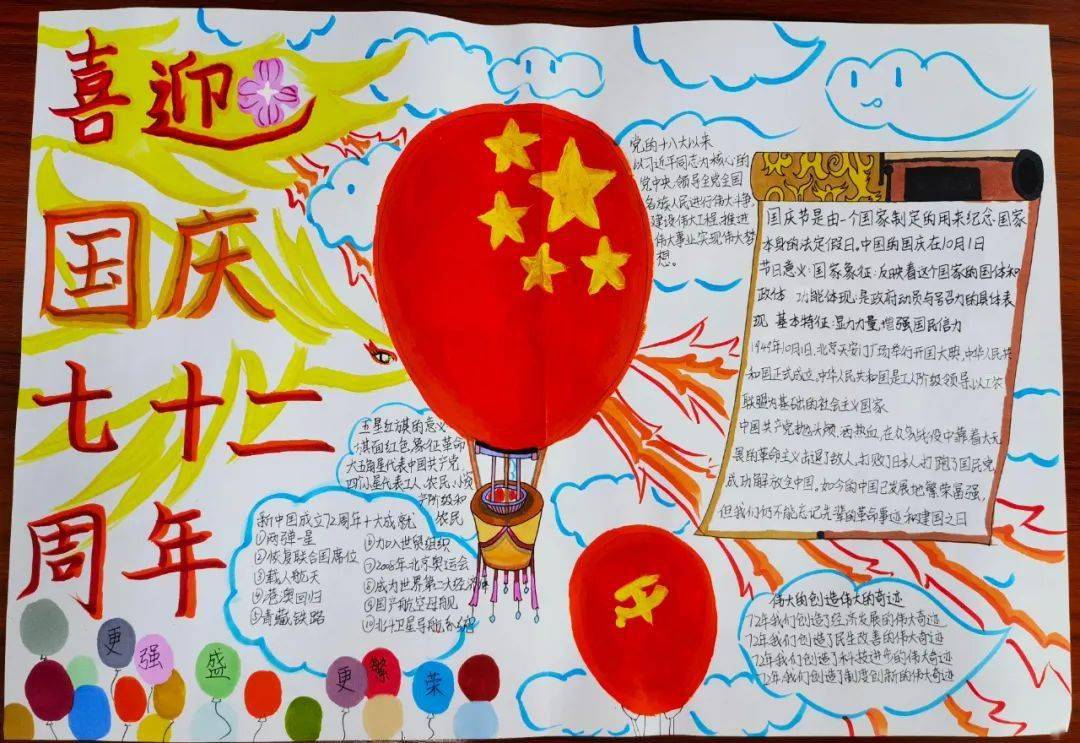 喜迎
国庆
七十二
周年
党的十八大以来
以习近平同志为核心的
党中央,领导全党全国
各族人民进行伟大斗争,
建设伟大工程,推进
伟大事业,实现伟大梦
想。
国庆节是由一个国家制定的用来纪念国家
本身的法定假日。中国的国庆在10月1日
节日意义:国家象征:反映着这个国家的国体和
政体 功能体现:是政府动员与号召力的具体表
现 基本特征:显力力量,增强国民信力
1949年10月1日,北京天安门广场举行开国大典,中华人民共
和国正式成立,中华人民共和国是工人阶级领导,以工农
联盟为基础的社会主义国家
中国共产党抛头颅,洒热血,在众多战役中靠着大无
畏的革命主义击退了敌人,打败了日本人,打跑了国民党,
成功解放全中国。如今的中国已发展地繁荣富强,
但我们仍不能忘记先辈的革命事迹和建国之日
五星红旗的意义
旗面红色,象征革命
大五角星代表中国共产党,
四颗小星代表工人、农民、小资
产阶级和
农民
新中国成立72周年十大成就
①两弹一星
②恢复联合国席位
③载人航天
④港澳回归
⑤青藏铁路
⑥加入世贸组织
⑦2008年北京奥运会
⑧成为世界第二大经济体
⑨国产航空母舰
⑩北斗卫星导航系统
伟大的创造伟大的奇迹
72年我们创造了经济发展的伟大奇迹
72年我们创造了民生改善的伟大奇迹
72年我们创造了科技进步的伟大奇迹
72年我们创造了制度创新的伟大奇迹
更强盛
更繁荣